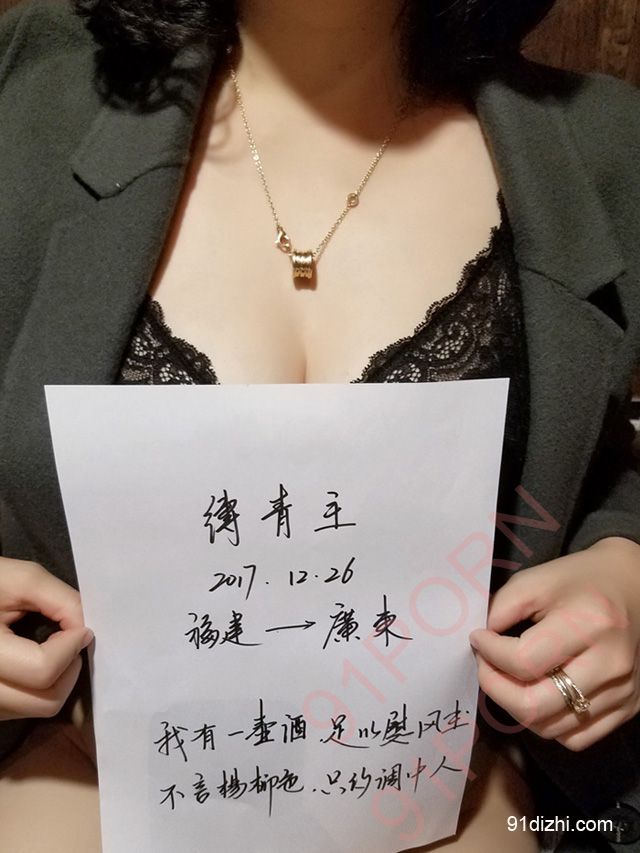 缚青主
2017.12.26
福建→廣東
我有一壶酒 足以慰风尘
不言楊柳色 只约调中人
91PORN
91PORN
91dizhi.com